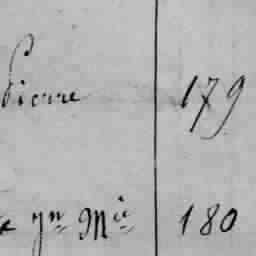 Pierre 179
yn Mie 180